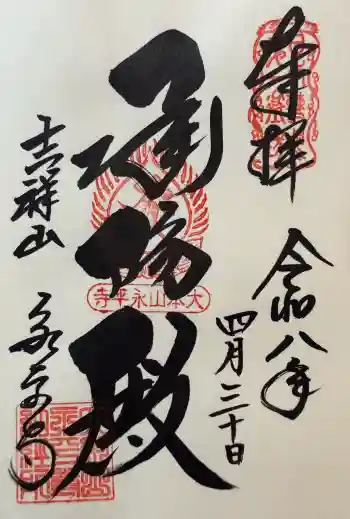 奉拝
令和八年
四月三十日
承陽殿
大本山永平寺
吉祥山
永平寺